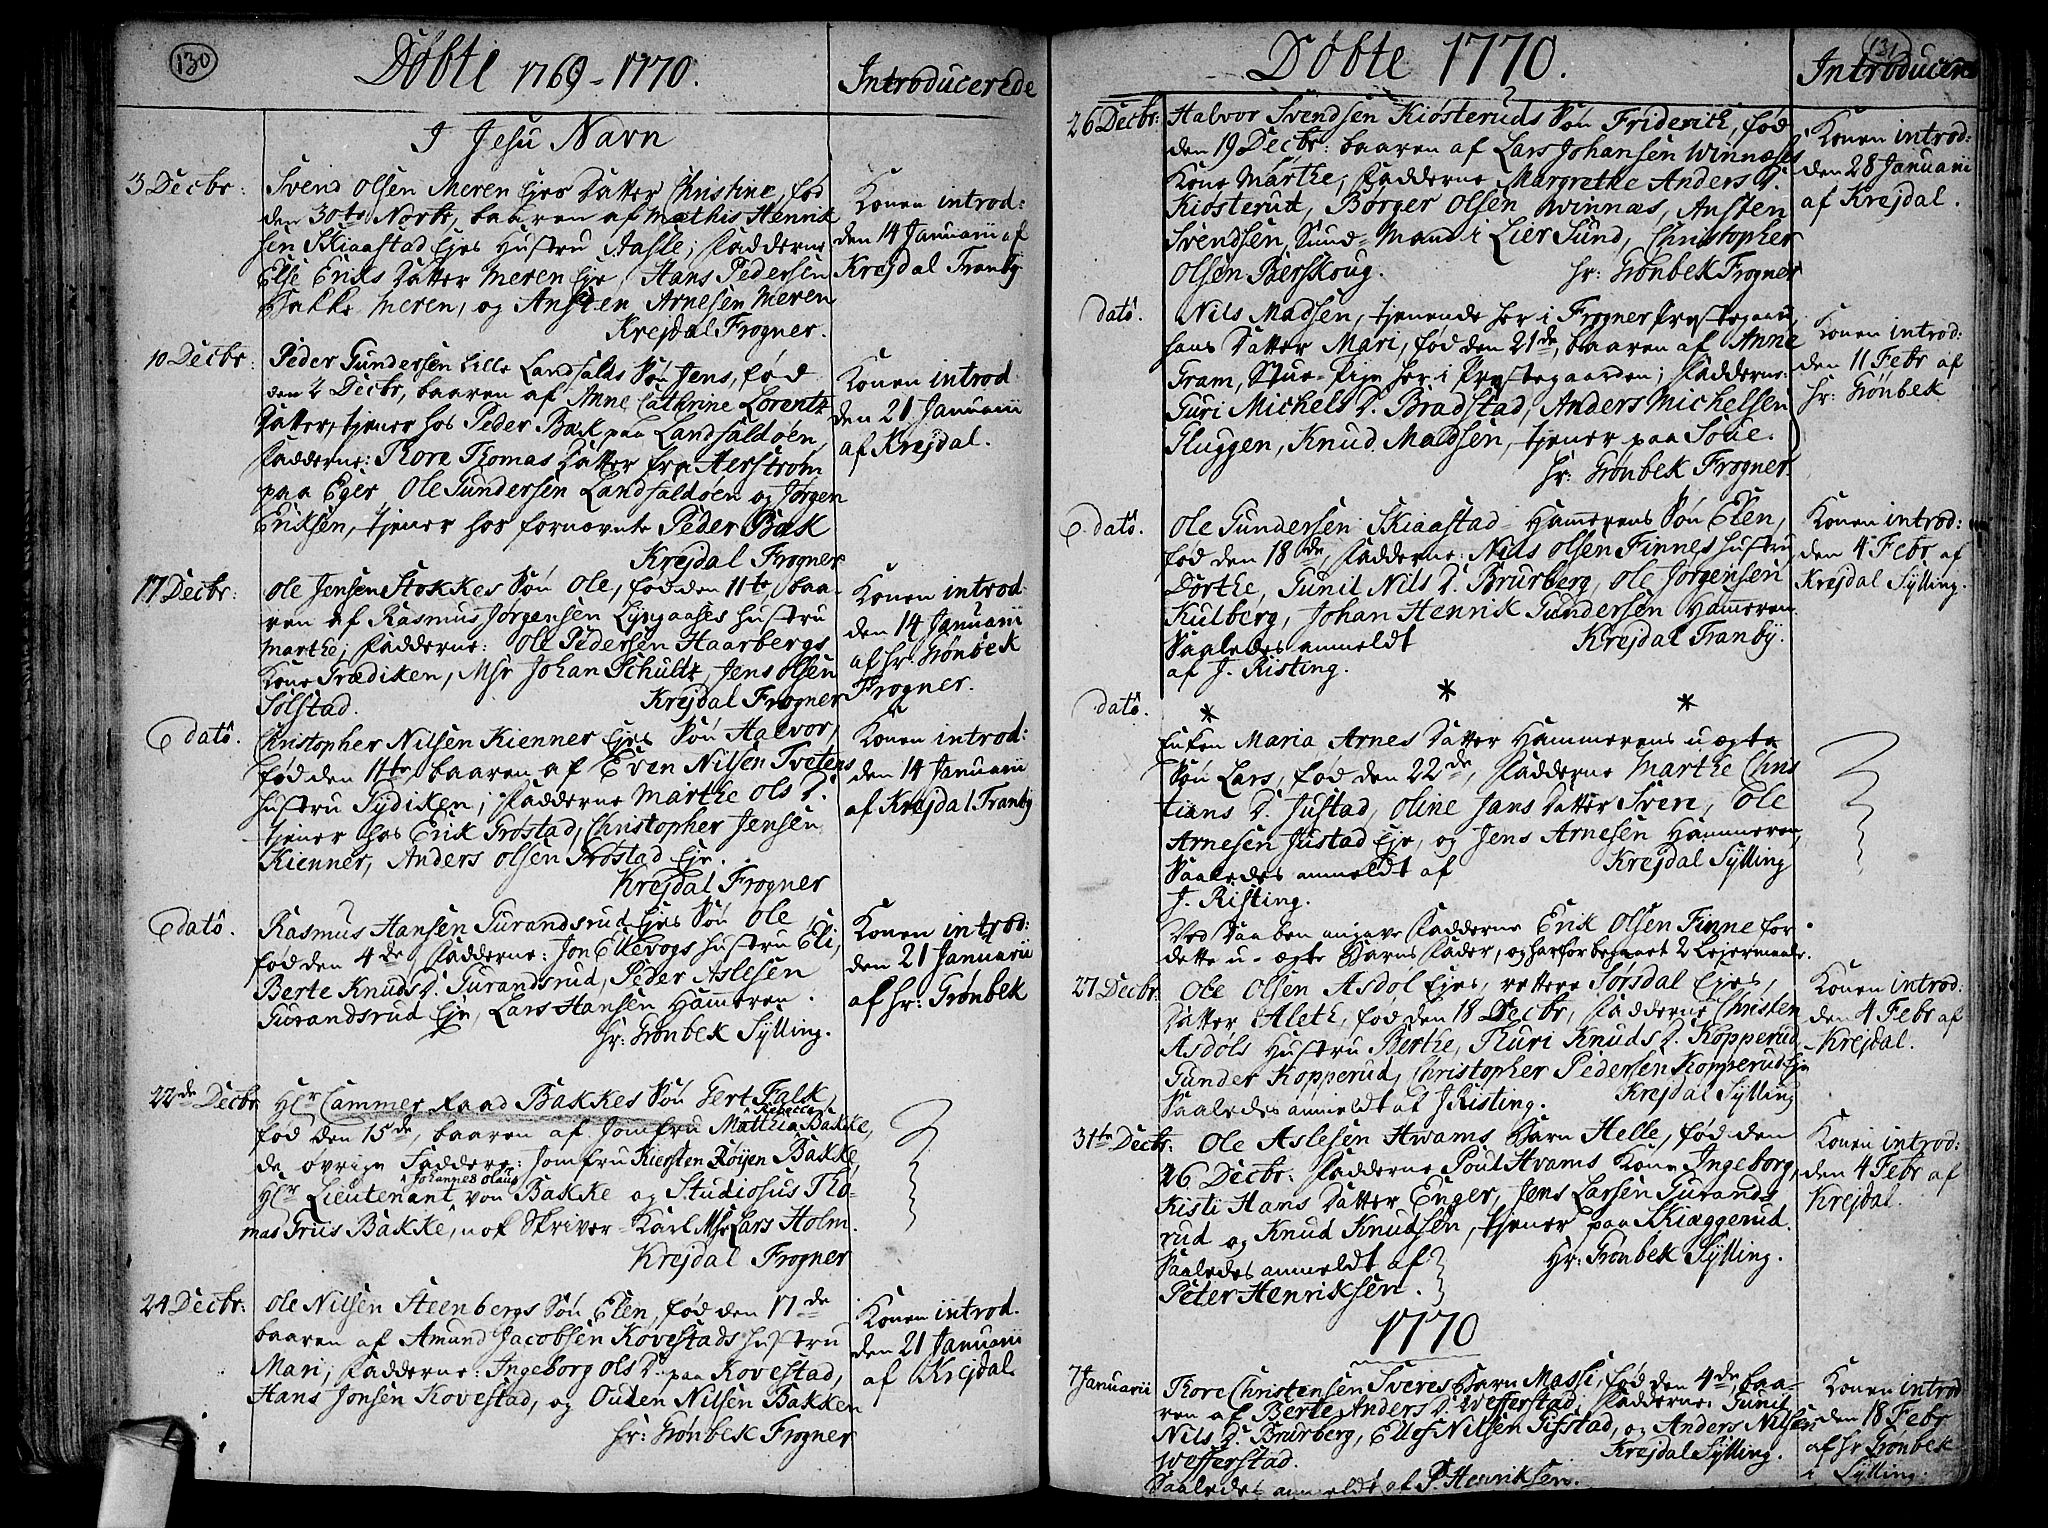 130
Döbte 1769-1770.
Introducerede
I Jesu Navn
3 Decbr:
Svend Olsen Meren Ejes Datter Christine, fød
den 30te Novbr, baaren af Mathis Henrik
sen Skiaastad Ejes Hustru Aasle; Fadderne
Else Eriks Datter Meren Eje, Hans Pedersen
Bakke Meren, og Ansten Arnesen Meren
Krejdal Frogner.
Konen introd:
den 14 Januarii af
Krejdal Tranby
10 Decbr:
Peder Gundersen Lille Landfalds Søn Jens, fød
den 2 Decbr, baaren af Anne Cathrine Lorentz
Datter, tjener hos Peder Bæk paa Landfaldøen,
Fadderne: Thore Thomas Datter fra Aerstrøm
paa Eger, Ole Gundersen Landfaldøen og Jørgen
Eriksen, tjener hos fornævnte Peder Bæk
Krejdal Frogner
Konen introd
den 21 Januarii
af Krejdal.
17 Decbr:
Ole Jensen Stokkes Søn Ole, fød den 11te baa-
ren af Rasmus Jørgensen Lyngaases Hustru
Marthe; Fadderne: Ole Pedersen Haarbergs
Kone Trædiken, Msr Johan Schultz, Jens Olsen
Solstad.
Krejdal Frogner
Konen introd
den 14 Januarii
af hr: Grønbek
Frogner.
dató.
Christopher Nilsen Kienner Ejes Søn Halvor,
fød den 11te baaren af Even Nilsen Tvetens
Hustru Sydiken; Fadderne Marthe Ols D.
tjener hos Erik Frøstad, Christopher Jensen
Kienner, Anders Olsen Frostad Eje.
Krejdal Frogner
Konen introd:
den 14 Januarii
af Krejdal Tranby
dató.
Rasmus Hansen Gurandsrud Ejes Søn Ole
fød den 4de, Fadderne: Jon Ellevogs Hustru Eli,
Berte Knuds D. Gurandsrud, Peder Aslesen
Gurandsrud Eje, Lars Hansen Hameren.
Hr: Grønbek Sylling.
Konen introd:
den 21 Januarii
af Hr: Grønbek
22de Decbr
Hr Cammer Raad Bakkes Søn Gert Falk,
fød den 15de, baaren af Jomfru Matthia Rebecca Bakke,
de øvrige Faddere: Jomfru Kiersten Röyen Bakke,
Hr Lieutenant Johannes Olaus von Bakke og Studiosus Tho-
mas Friis Bakke, nok Skriver-Karl Msr Lars Holm.
Krejdal Frogner
24 Decbr:
Ole Nilsen Steenbergs Søn Elen, fød den 17de
baaren af Amund Jacobsen Kovestads Hustru
Mari; Fadderne: Ingeborg Ols D. paa Kovestad,
Hans Jonsen Kovestad, og Ouden Nilsen Bakken
Hr: Grønbek Frogner
Konen introd.
den 21 Januarii
af Krejdal
131
Döbte 1770.
Introducere
26 Decbr:
Halvor Svendsen Kiøsteruds Søn Friderich, fød
den 19 Decbr: baaren af Lars Johansen Winnæses
Kone Marthe; Fadderne Margrethe Anders D.
Kiøsterud, Börger Olsen Winnæs, Ansten
Svendsen, Sund-Mand i Lier Sund, Christopher
Olsen Bærskoug.
Hr: Grønbek Frogner
Konen introd:
den 28 Januarii
af Krejdal.
dató.
Nils Madsen, tjenende her i Frogner Prestegaard
hans Datter Mari, fød den 21de, baaren af Anne
Gram, Stue-Pige her i Prestegaarden; Fadderne
Guri Michels D. Bradstad, Anders Michelsen
Gluggen, Knud Madsen, tjener paa Soue.
Hr: Grønbek Frogner
Konen introd:
den 11 Febr af
Hr: Grønbek
dató.
Ole Gundersen Skiaastad Hamerens Søn Elen,
fød den 18de, Fadderne: Nils Olsen Finnes Hustru
Dorthe, Gunil Nils D. Brurberg, Ole Jørgensen
Kulberg, Johan Henrik Gundersen Hammeren
Saaledes anmeldt
af J. Risting.
Krejdal Tranby.
Konen introd:
den 4 Febr af
Krejdal Sylling.
dató.
* * *
Enken Maria Arnes Datter Hammerens uægte
Søn Lars, fød den 22de, Fadderne Marthe Chris
tians D. Justad, Oline Jans Datter Svere, Ole
Arnesen Justad Eje, og Jens Arnesen Hammeren,
Saaledes anmeldt af
J. Risting.
Krejdal Sylling
Ved Daaben angave Fadderne Erik Olsen Finne for
dette u-ægte Barns Fader, og har forbegaaet 2 Lejermaale.
27 Decbr:
Ole Olsen Asdøl Ejes, rettere Sørsdal Ejes,
Datter Aleth, fød den 18 Decbr, Fadderne Christen
Asdøls Hustru Berthe, Thuri Knuds D. Kopperud,
Gunder Kopperud, Christopher Pedersen Kopperud Eje
Saaledes anmeldt af J Risting.
Krejdal Sylling
Konen introd:
den 4 Febr af
Krejdal.
31te Decbr:
Ole Aslesen Hwams Barn Helle, fød den
26 Decbr: Fadderne Poul Hvams Kone Ingeborg,
Kisti Hans Datter Enger, Jens Larsen Gurands-
rud og Knud Knudsen, tjener paa Skiæggerud.
Saaledes anmeldt af
Peter Henriksen.
Hr: Grønbek Sylling.
Konen introd:
den 4 Febr af
Krejdal.
1770
7 Januarii
Thore Christensen Sveres Barn Massi, fød den 4de, baa-
ren af Berte Anders D. Wefferstad; Fadderne: Gunil
Nils D. Brurberg, Ellef Nilsen Gifstad, og Anders Nilsen
Wefferstad.
Krejdal Sylling.
Saaledes anmeldt af P. Henriksen.
Konen introd
den 18 Febr
af Hr Grønbek
i Sylling.